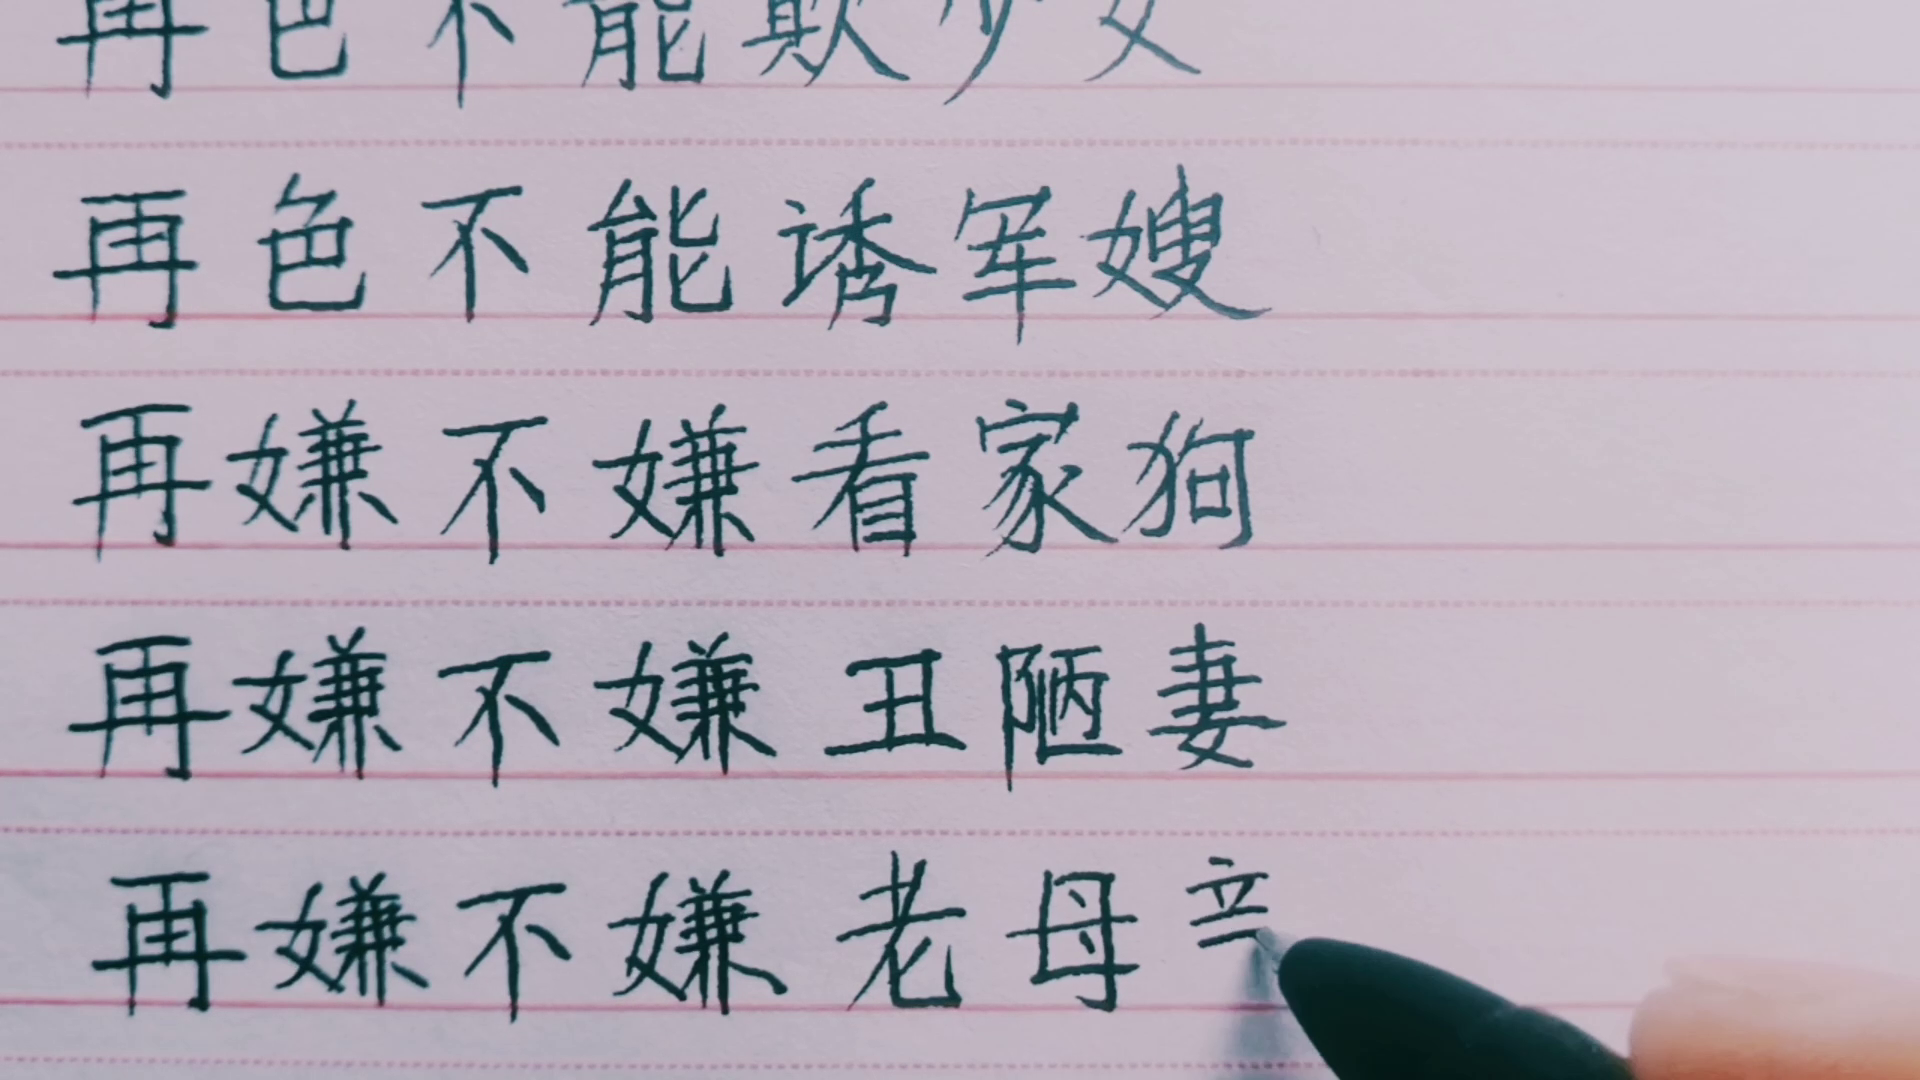 再色不能欺少女
再色不能诱军嫂
再嫌不嫌看家狗
再嫌不嫌丑陋妻
再嫌不嫌老母